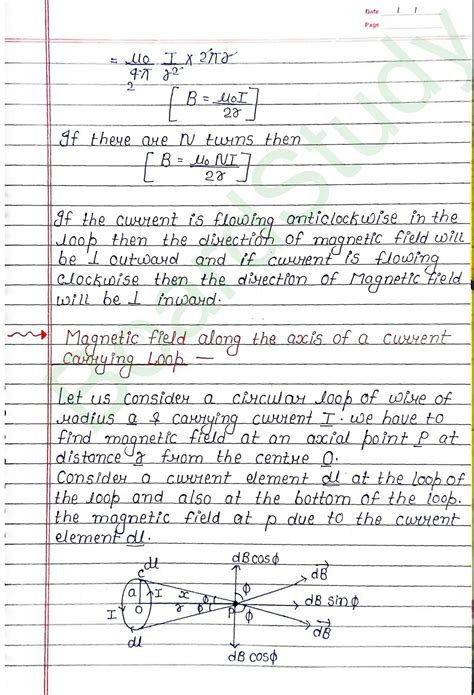 Date / /
Page
= μ0/4π I/r² × 2πr
2
[B = μ0I/2r]
If there are N turns then
[B = μ0 NI/2r]
If the current is flowing anticlockwise in the
loop then the direction of magnetic field will
be ⊥ outward and if current is flowing
clockwise then the direction of Magnetic field
will be ⊥ inward.
Magnetic field along the axis of a current
Carrying Loop —
Let us consider a circular loop of wire of
radius a & carrying current I. we have to
find magnetic field at an axial point P at
distance r from the centre O.
Consider a current element dl at the loop of
the loop and also at the bottom of the loop.
the magnetic field at p due to the current
element dl.
dl dBcosϕ dB
C
a I x ϕ ϕ
I O r ϕ P dB sinϕ
ϕ
dl dB
dBcosϕ
BoardStudy